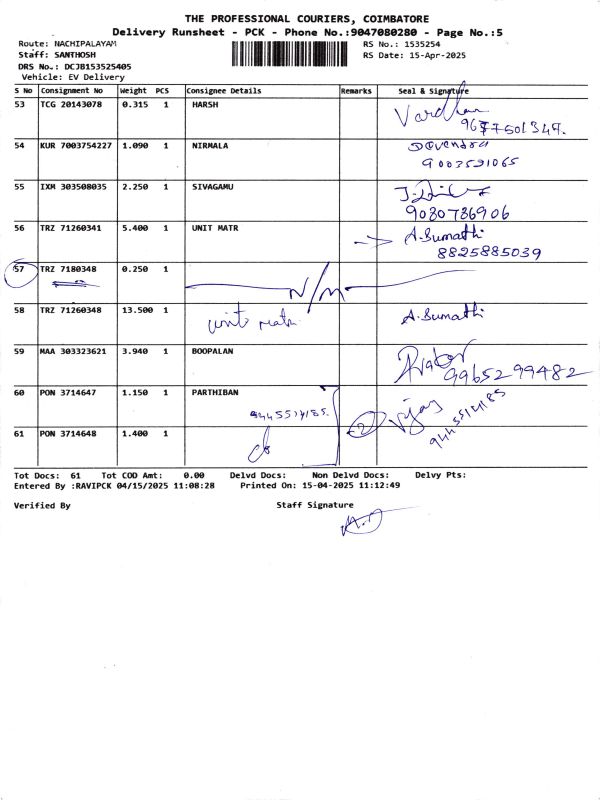 THE PROFESSIONAL COURIERS, COIMBATORE
Delivery Runsheet - PCK - Phone No.:9047080280 - Page No.:5
Route: NACHIPALAYAM
RS No.: 1535254
Staff: SANTHOSH
RS Date: 15-Apr-2025
DRS No.: DCJB153525405
Vehicle: EV Delivery
S No Consignment No Weight PCS Consignee Details Remarks Seal & Signature
53 TCG 20143078 0.315 1 HARSH Vardhan
9677501349.
54 KUR 7003754227 1.090 1 NIRMALA Devendra
9003591065
55 IXM 303508035 2.250 1 SIVAGAMU
9080786906
56 TRZ 71260341 5.400 1 UNIT MATR A.Sumathi
8825885039
57 TRZ 7180348 0.250 1 N/M
58 TRZ 71260348 13.500 1 unit matr A.Sumathi
59 MAA 303323621 3.940 1 BOOPALAN
9965299482
60 PON 3714647 1.150 1 PARTHIBAN Vijay
9445514185. 9445514185
61 PON 3714648 1.400 1
Tot Docs: 61 Tot COD Amt: 0.00 Delvd Docs: Non Delvd Docs: Delvy Pts:
Entered By :RAVIPCK 04/15/2025 11:08:28 Printed On: 15-04-2025 11:12:49
Verified By Staff Signature